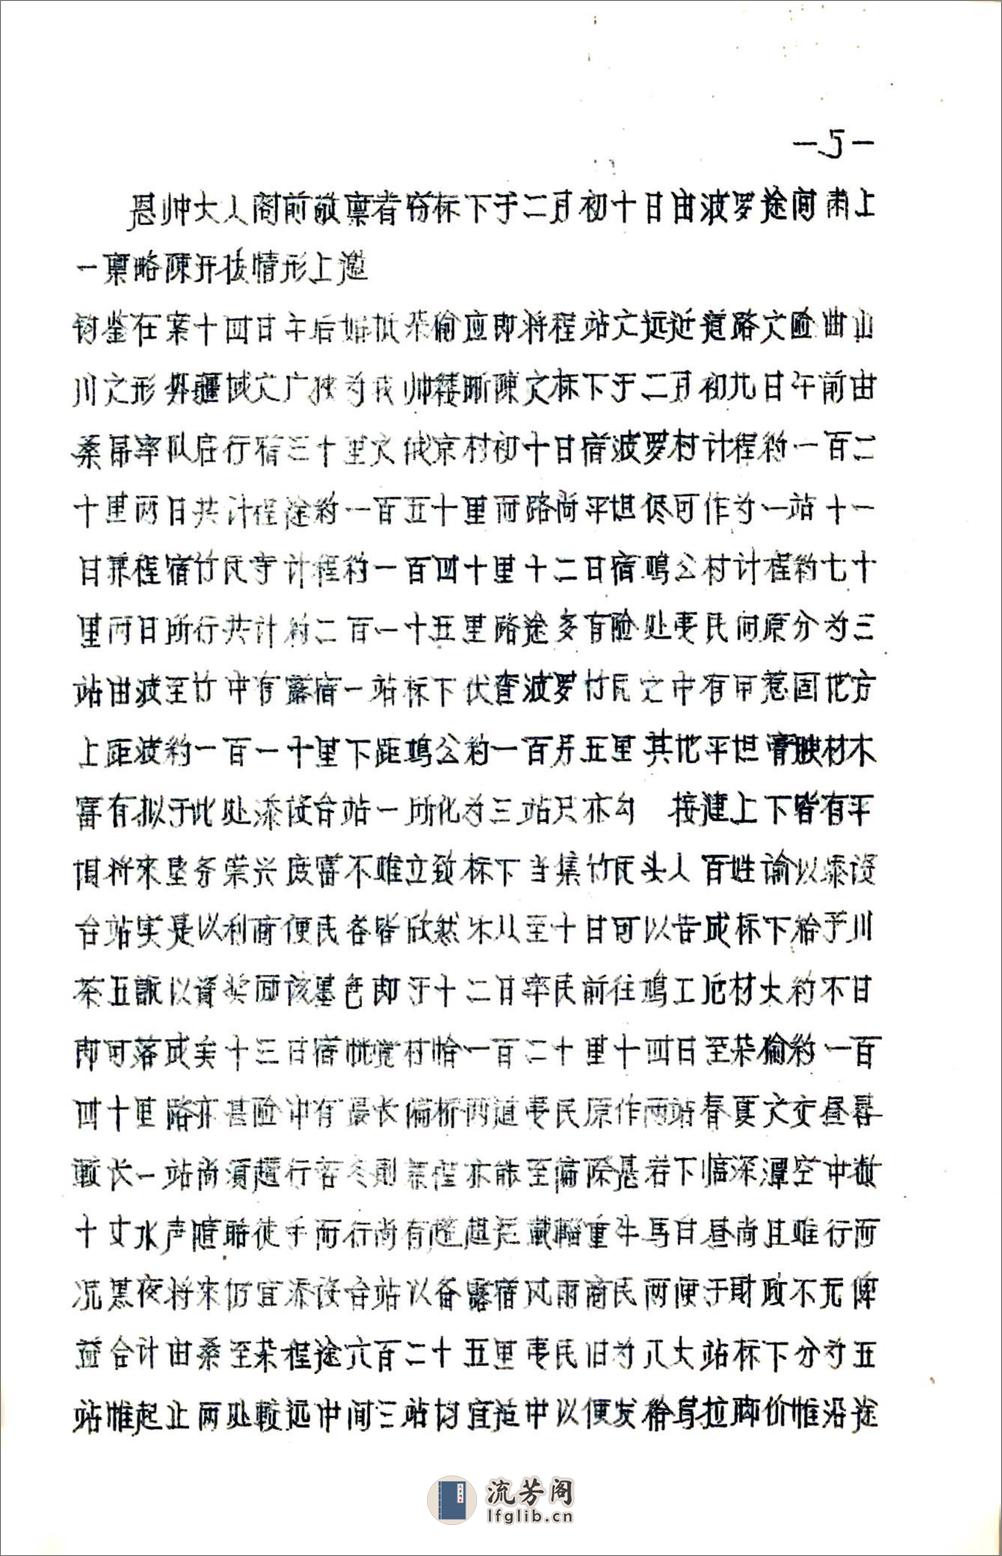 —5—
恩帅大人阁前敬禀者窃标下于二月初十日由波罗途间肃上
一禀略陈开拔情形上邀
钧鉴在案十四日午后始抵杂偷应即将程站文远近道路文险曲山
川文形界疆域文广狭为我帅缕晰陈文标下于二月初九日午前由
桑昂率队启行宿三十里文俄京村初十日宿波罗村计程约一百二
十里两日共计程途约一百五十里而路尚平坦侭可作为一站十一
日兼程宿竹瓦寺计程约一百四十里十二日宿鸣公村计程约七十
里两日所行共计约二百一十五里路途多有险处夷民向原分为三
站由波至竹中有露宿一站标下伏查波罗竹瓦之中有甲惹固地方
上距波约一百一十里下距鸣公约一百另五里其地平坦膏腴材木
富有拟于此处添设台站一所化为三站只亦匀 接建上下皆有平
坝将来垦务荣兴庶富不难立致标下当集竹瓦头人百姓谕以添设
台站实是以利商便民各皆欣然乐从至十日可以告成标下给予川
茶五甑以资奖励该墨色即于十二日率民前往鸠工庀材大约不日
即可落成矣十三日宿 村恰一百二十里十四日至杂偷约一百
四十里路亦甚险中有最长偏桥两道夷民原作两站春夏文交昼晷
较长一站尚须趱行若冬则兼程亦能至偏隘悬岩下临深潭空中数
十丈水声喧聒徒手而行尚有趑趄况戴辎重牛马白昼尚且难行而
况黑夜将来仍宜添设台站以备露宿风雨商民两便于财政不无俾
益合计由桑至杂程途六百二十五里夷民旧为八大站标下分为五
站惟起止两处较远中间三站均宜适中以便发给乌拉脚价惟沿途
流芳阁
lfglib.cn